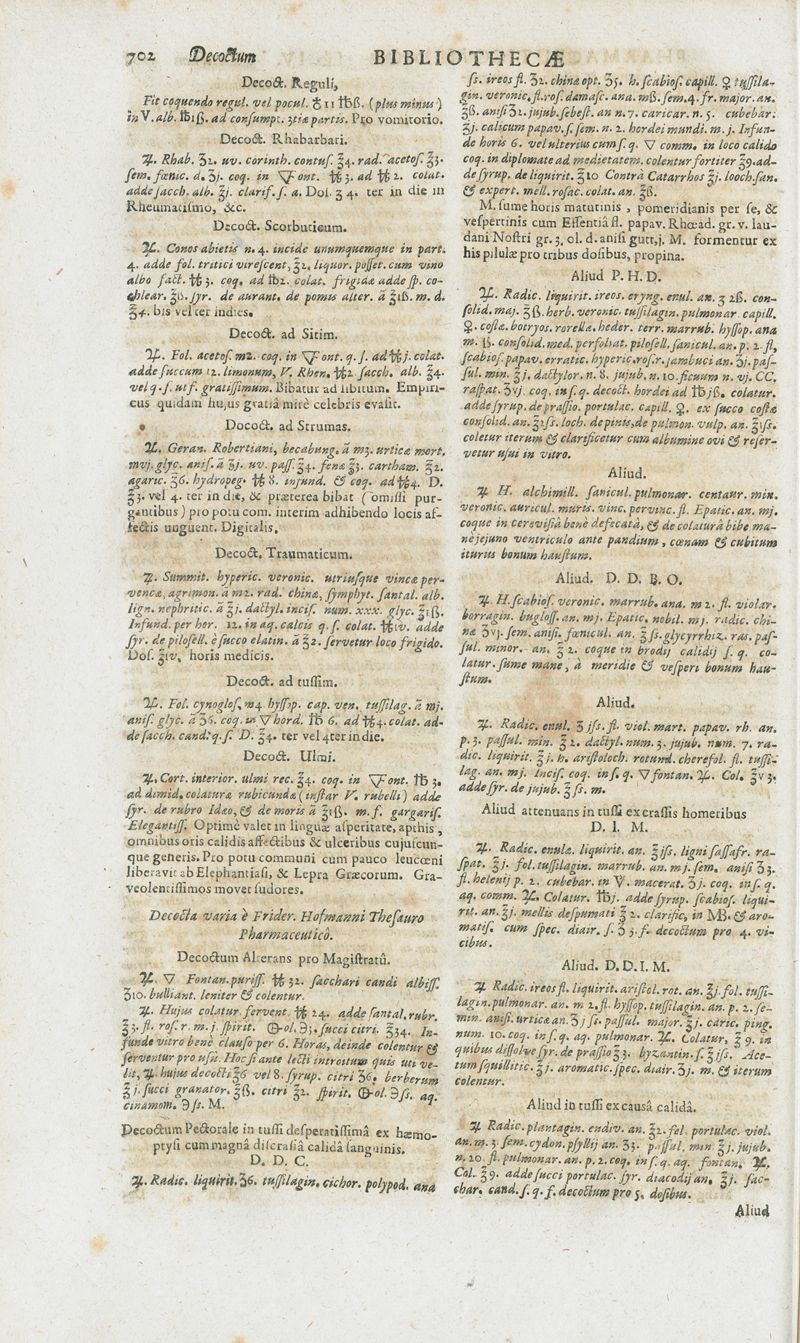 702 Decoctum BIBLIOTHECÆ
Decoct. Reguli,
Fit coquendo regul. vel pocul. ♁ 11 ℔ß. (plus minus)
in V. alb. ℔1ß. ad consumpt. 3tiæ partis. Pro vomitorio.
Decoct. Rhabarbari.
♃. Rhab. ℥2. uv. corinth. contus. ℥4. rad. acetos. ℥3.
sem. fœnic. d. ʒj. coq. in ▽ ont. ℔ 3. ad ℔ 2. colat.
adde sacch. alb. ℥j. clarif. s. a. Dos. ℥ 4. ter in die in
Rheumatismo, &c.
Decoct. Scorbuticum.
♃. Conos abietis n. 4. incide unumquemque in part.
4. adde fol. tritici virescent, ℥2, liquor. posset. cum vino
albo fact. ℔ 3. coq. ad ℔2. colat. frigidæ adde sp. co-
chlear. ℥ß. syr. de aurant. de pomis alter. ā ℥1ß. m. d.
℥4. bis vel ter indies.
Decoct. ad Sitim.
♃. Fol. acetos. m2. coq. in ▽ ont. q. s. ad ℔j. colat.
adde succum 12. limonum, V. Rhen. ℔2 sacch. alb. ℥4.
vel q. s. ut f. gratissimum. Bibatur ad libitum. Empiri-
cus quidam hujus gratiâ mirè celebris evasit.
Dococt. ad Strumas.
♃. Geran. Robertiani, becabung. ā m3. urticæ mort.
mvj. glyc. anis. ā ℥j. uv. pass. ℥4. senæ ℥3. cartham. ℥2.
agaric. ʒ6. hydropeg. ℔ 8. infund. & coq. ad ℔4. D.
℥3. vel 4. ter in die, & præterea bibat (omissi pur-
gantibus) pro potu com. interim adhibendo locis af-
fectis unguent. Digitalis.
Decoct. Traumaticum.
♃. Summit. hyperic. veronic. utriusque vincæ per-
vencæ, agrimon. ā m2. rad. chinæ, symphyt. santal. alb.
lign. nephritic. ā ℥j. dactyl. incis. num. xxx. glyc. ℥1ß.
Infund. per hor. 12. in aq. calcis q. s. colat. ℔iv. adde
syr. de pilosell. è succo elatin. ā ℥2. servetur loco frigido.
Dos. ℥iv, horis medicis.
Decoct. ad tussim.
♃. Fol. cynoglos. m4 hyssop. cap. ven. tussilag. ā mj.
anis. glyc. ā ʒ6. coq. in ▽ hord. ℔ 6. ad ℔4. colat. ad-
de sacch. cand. q. s. D. ℥4. ter vel 4ter in die.
Decoct. Ulmi.
♃. Cort. interior. ulmi rec. ℥4. coq. in ▽ ont. ℔ 3.
ad dimid. colaturæ rubicundæ (instar V. rubelli) adde
syr. de rubro Idæo, & de moris ā ℥1ß. m. f. gargaris.
Elegantiss. Optimè valet in linguæ asperitate, apthis,
omnibus oris calidis affectibus & ulceribus cujuscun-
que generis. Pro potu communi cum pauco leucœni
liberavit ab Elephantiasi, & Lepra Græcorum. Gra-
veolentissimos movet sudores.
Decocta varia è Frider. Hofmanni Thesauro
Pharmaceuticô.
Decoctum Alterans pro Magistratû.
♃. ▽ Fontan. puriss. ℔ 32. sacchari candi albiss.
℥10. bulliant. leniter & colentur.
♃. Hujus colatur fervent. ℔ 24. adde santal. rubr.
℥3. fl. ros. r. m. j. spirit. ol. ℈3. succi citri. ℥34. In-
funde vitro benè clauso per 6. Horas, deinde colentur &
serventur pro usû. Hoc si ante lecti introitum quis uti ve-
lit, ♃. hujus decocti ℥6 vel 8. syrup. citri ʒ6. berberum
℥ j. succi granator. ℥ß. citri ℥2. spirit. ol. ℈ss. aq.
cinamom. ℈ ss. M.
Decoctum Pectorale in tussi desperatissimâ ex hæmo-
ptysi cum magnâ discrasiâ calidâ sanguinis.
D. D. C.
♃. Radic. liquirit. ʒ6. tussilagin. cichor. polypod. ana
ss. ireos fl. ʒ2. chinæ opt. ʒ5. h. scabios. capill. ♀ tussila-
gin. veronic. fl. ros. damasc. ana. mß. sem. 4. fr. major. an.
℥ß. anisi ʒ2. jujub. sebest. an n. 7. caricar. n. 5. cubebar.
℥j. calicum papav. s. sem. n. 2. hordei mundi. m. j. Infun-
de horis 6. vel ulterius cum s. q. ▽ comm. in loco calido
coq. in diplomate ad medietatem. colentur fortiter ℥9. ad-
de syrup. de liquirit. ℥10 Contrà Catarrhos ℥j. looch. san.
& expert. mell. rosac. colat. an. ℥ß.
M. sume horis matutinis, pomeridianis per se, &
vespertinis cum Essentiâ fl. papav. Rhœad. gr. v. lau-
dani Nostri gr. 3. ol. d. anisi gutt, j. M. formentur ex
his pilulæ pro tribus dosibus, propina.
Aliud P. H. D.
♃. Radic. liquirit. ireos. eryng. enul. an. ʒ 2ß. con-
solid. maj. ℥ß. herb. veronic. tussilagin. pulmonar capill.
♀. costæ. botryos. rorella. heder. terr. marrub. hyssop. ana
m. ß. consolid. med. perfoliat. pilosell, sanicul. an. p. 2. fl,
scabios. papav. erratic. hyperic. ros. r. sambuci an. ʒj. pas-
sul. min. ℥ j. dactylor. n. 8. jujub. n. 10. ficuum n. vj. CC.
raspat. ʒvj. coq. in s. q. decoct. hordei ad ℔ jß. colatur.
adde syrup. de prassio. portulac. capill. ♀. ex succo costæ
consolid. an. ℥1ss. loch. de pinis, de pulmon. vulp. an. ℥1ss.
coletur iterum & clarificetur cum albumine ovi & reser-
vetur usui in vitro.
Aliud.
♃ H. alchimill. sanicul. pulmonar. centaur. min.
veronic. auricul. muris. vinc. pervinc. fl. Epatic. an. mj.
coque in cerevisiâ benè defecatâ, & de colaturâ bibe ma-
ne jejuno ventriculo ante pandium, cœnam & cubitum
iturus bonum haustum.
Aliud. D. D. B. O.
♃. H. scabios. veronic. marrub. ana. m 2. fl. violar.
borragin. bugloss. an. mj. Epatic. nobil. mj. radic. chi-
næ ʒvj. sem. anisi. fœnicul. an. ℥ ss. glycyrrhiz. ras. pas-
sul. minor. an. ℥ 2. coque in brodij calidij s. q. co-
latur. sume mane, à meridie & vesperi bonum hau-
stum.
Aliud.
♃. Radic. enul. ℥ jss. fl. viol. mart. papav. rh. an.
p. 3. passul. min. ℥ 2. dactyl. num. 3. jujub. num. 7. ra-
dic. liquirit. ℥ j. h. aristoloch. rotund. cherefol. fl. tussi-
lag. an. mj. Incis. coq. in s. q. ▽ fontan. ♃. Col. ℥ v 3.
adde syr. de jujub. ℥ ss. m.
Aliud attenuans in tussi ex crassis homeribus
D. I. M.
♃. Radic. enulæ. liquirit. an. ℥ jss. ligni sassafr. ra-
spat. ℥j. fol. tussilagin. marrub. an. m j. sem. anisi ʒ 3.
fl. helenij p. 2. cubebar. in V. macerat. ʒ j. coq. in s. q.
aq. comm. ♃. Colatur. ℔j. adde syrup. scabios. liqui-
rit. an. ℥j. mellis despumati ℥ 2. clarific, in MB. & aro-
matis. cum spec. diair. s. ʒ 3. f. decoctum pro 4. vi-
cibus.
Aliud. D. D. I. M.
♃ Radic. ireos fl. liquirit. aristol. rot. an. ℥j. fol. tussi-
lagin. pulmonar. an. m 2. fl. hyssop. tussilagin. an. p. 2. se-
min. anisi. urticæ an. ʒ j ss. passul. major. ℥ j. caric. ping.
num. 10. coq. in s. q. aq. pulmonar. ♃. Colatur, ℥ 9. in
quibus dissolve syr. de prassio ℥ 3. byzantin. s. ℥ jss. Ace-
tum squillitic. ℥ j. aromatic. spec. diair. ʒj. m. & iterum
colentur.
Aliud in tussi ex causâ calidâ.
♃ Radic. plantagin. endiv. an. ℥2. fol. portulac. viol.
an. m. 3. sem. cydon. psyllij an. ʒ3. passul. min ℥ j. jujub.
n. 20. fl. pulmonar. an. p. 2. coq. in s. q. aq. fontan. ♃.
Col. ℥ 9. adde succi portulac. syr. diacodij an. ℥j. sac-
char. cand. s. q. f. decoctum pro 5. dosibus.
Aliud